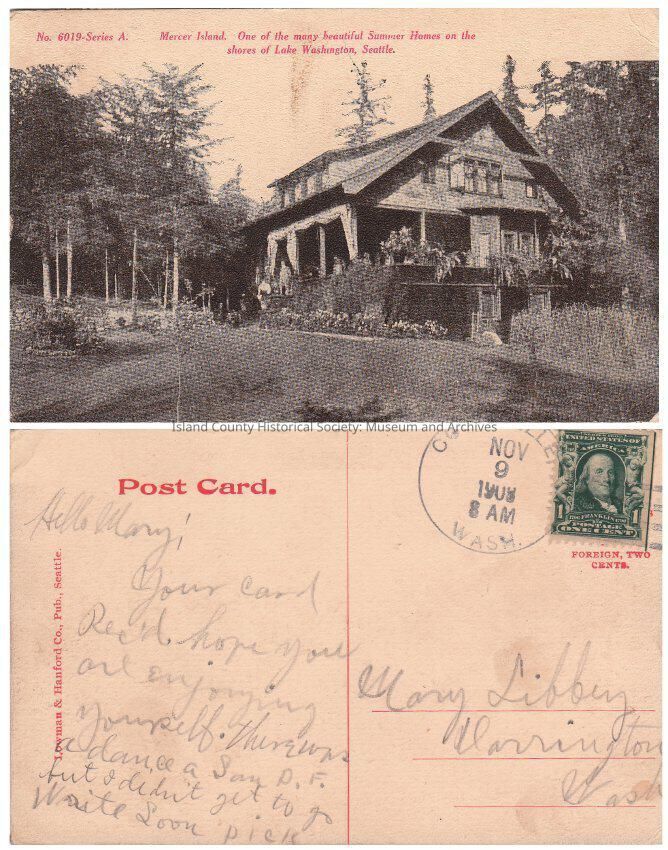 No. 6019-Series A. Mercer Island. One of the many beautiful Summer Homes on the
shores of Lake Washington, Seattle.
Island County Historical Society: Museum and Archives
Post Card.
NOV
9
8 AM
WASH.
UNITED STATES OF
AMERICA
1 1
FRANKLIN
POSTAGE
ONE CENT
FOREIGN, TWO
CENTS.
Lowman & Hanford Co., Pub., Seattle.
Hello Mary!
Your card
Rec'd. hope you
are enjoying
yourself. There was
a dance a San D. F.
but I didn't get to go
Write Soon Dick
Mary Libbey
Darrington
Wash